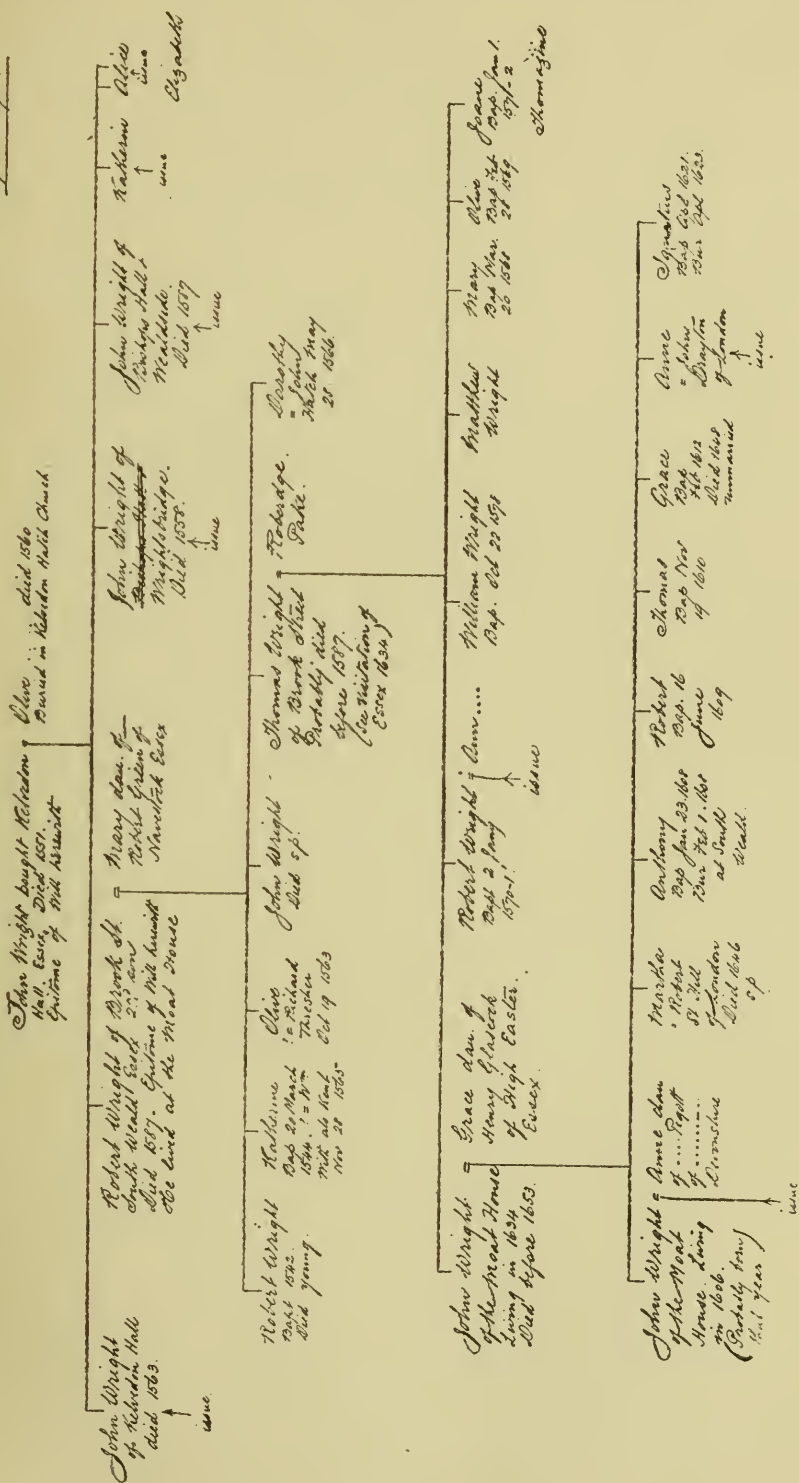 John Wright bought Kelvedon
Hall, Essex, Died 1551.
Epitome of Will herewith
=
Olive ..... died 1560
Buried in Kelvedon Hatch Church
John Wright
of Kelvedon Hall
died 1563.
issue
Robert Wright of Brook St.
South Weald Essex 2nd son
Died 1587. Epitome of Will herewith
He lived at the Moat House
=
Mary dau. of
Robert Green of
Navestock Essex
John Wright of
Wrightsbridge.
Died 1558.
issue
John Wright of
Bishops Hall &
Wealdside.
Died 1587
issue
Katherin
issue
Alice
issue
Elizabeth
Robert Wright
Bapt 1542.
Died young.
Katherine
Bap 20 March
1544. = Wm
Wilt als Kent
Nov 28 1565
Olive
= Richard
Thresher
Oct 19 1563
John Wright
Died s.p.
Thomas Wright
of Brook Street
Probably died
before 1587.
(see Visitation of
Essex 1634)
=
Roberdge.
Pake.
Dorothy
= John
Hatch May
28 1566.
John Wright
of the Moat House
Living in 1634
Died before 1653.
=
Grace dau. of
Henry Glascock
of High Easter.
Essex.
Robert Wright = Ann....
Bapt 2 Jany
1570-1.
issue
William Wright
Bap. Oct 22 1578
Matthew
Wright
Mary
Bap Mar.
26 1568
Olive
Bap Feb
28 1569
Joane
Bap. Jan 1.
1571-2
Thomazine
John Wright
of the Moat
House. Living
in 1606.
(Probably born
that year)
=
Anne dau
of .... Pigott
of ........
Devonshire
issue
Martha
= Robert
St Hill
of London
Died 1646
s p
Anthony
Bap Jan 23. 1608
Bur Feb 1. 1608
at South
Weald.
Robert
Bap. 16
June
1609
Thomas
Bap Nov
19 1610
Grace
Bap
Feb 1612
Died 1648
unmarried
Anne
= John
Drayton
of London
issue
Ignatius
Bap 1621.
Bur Apl 1623.